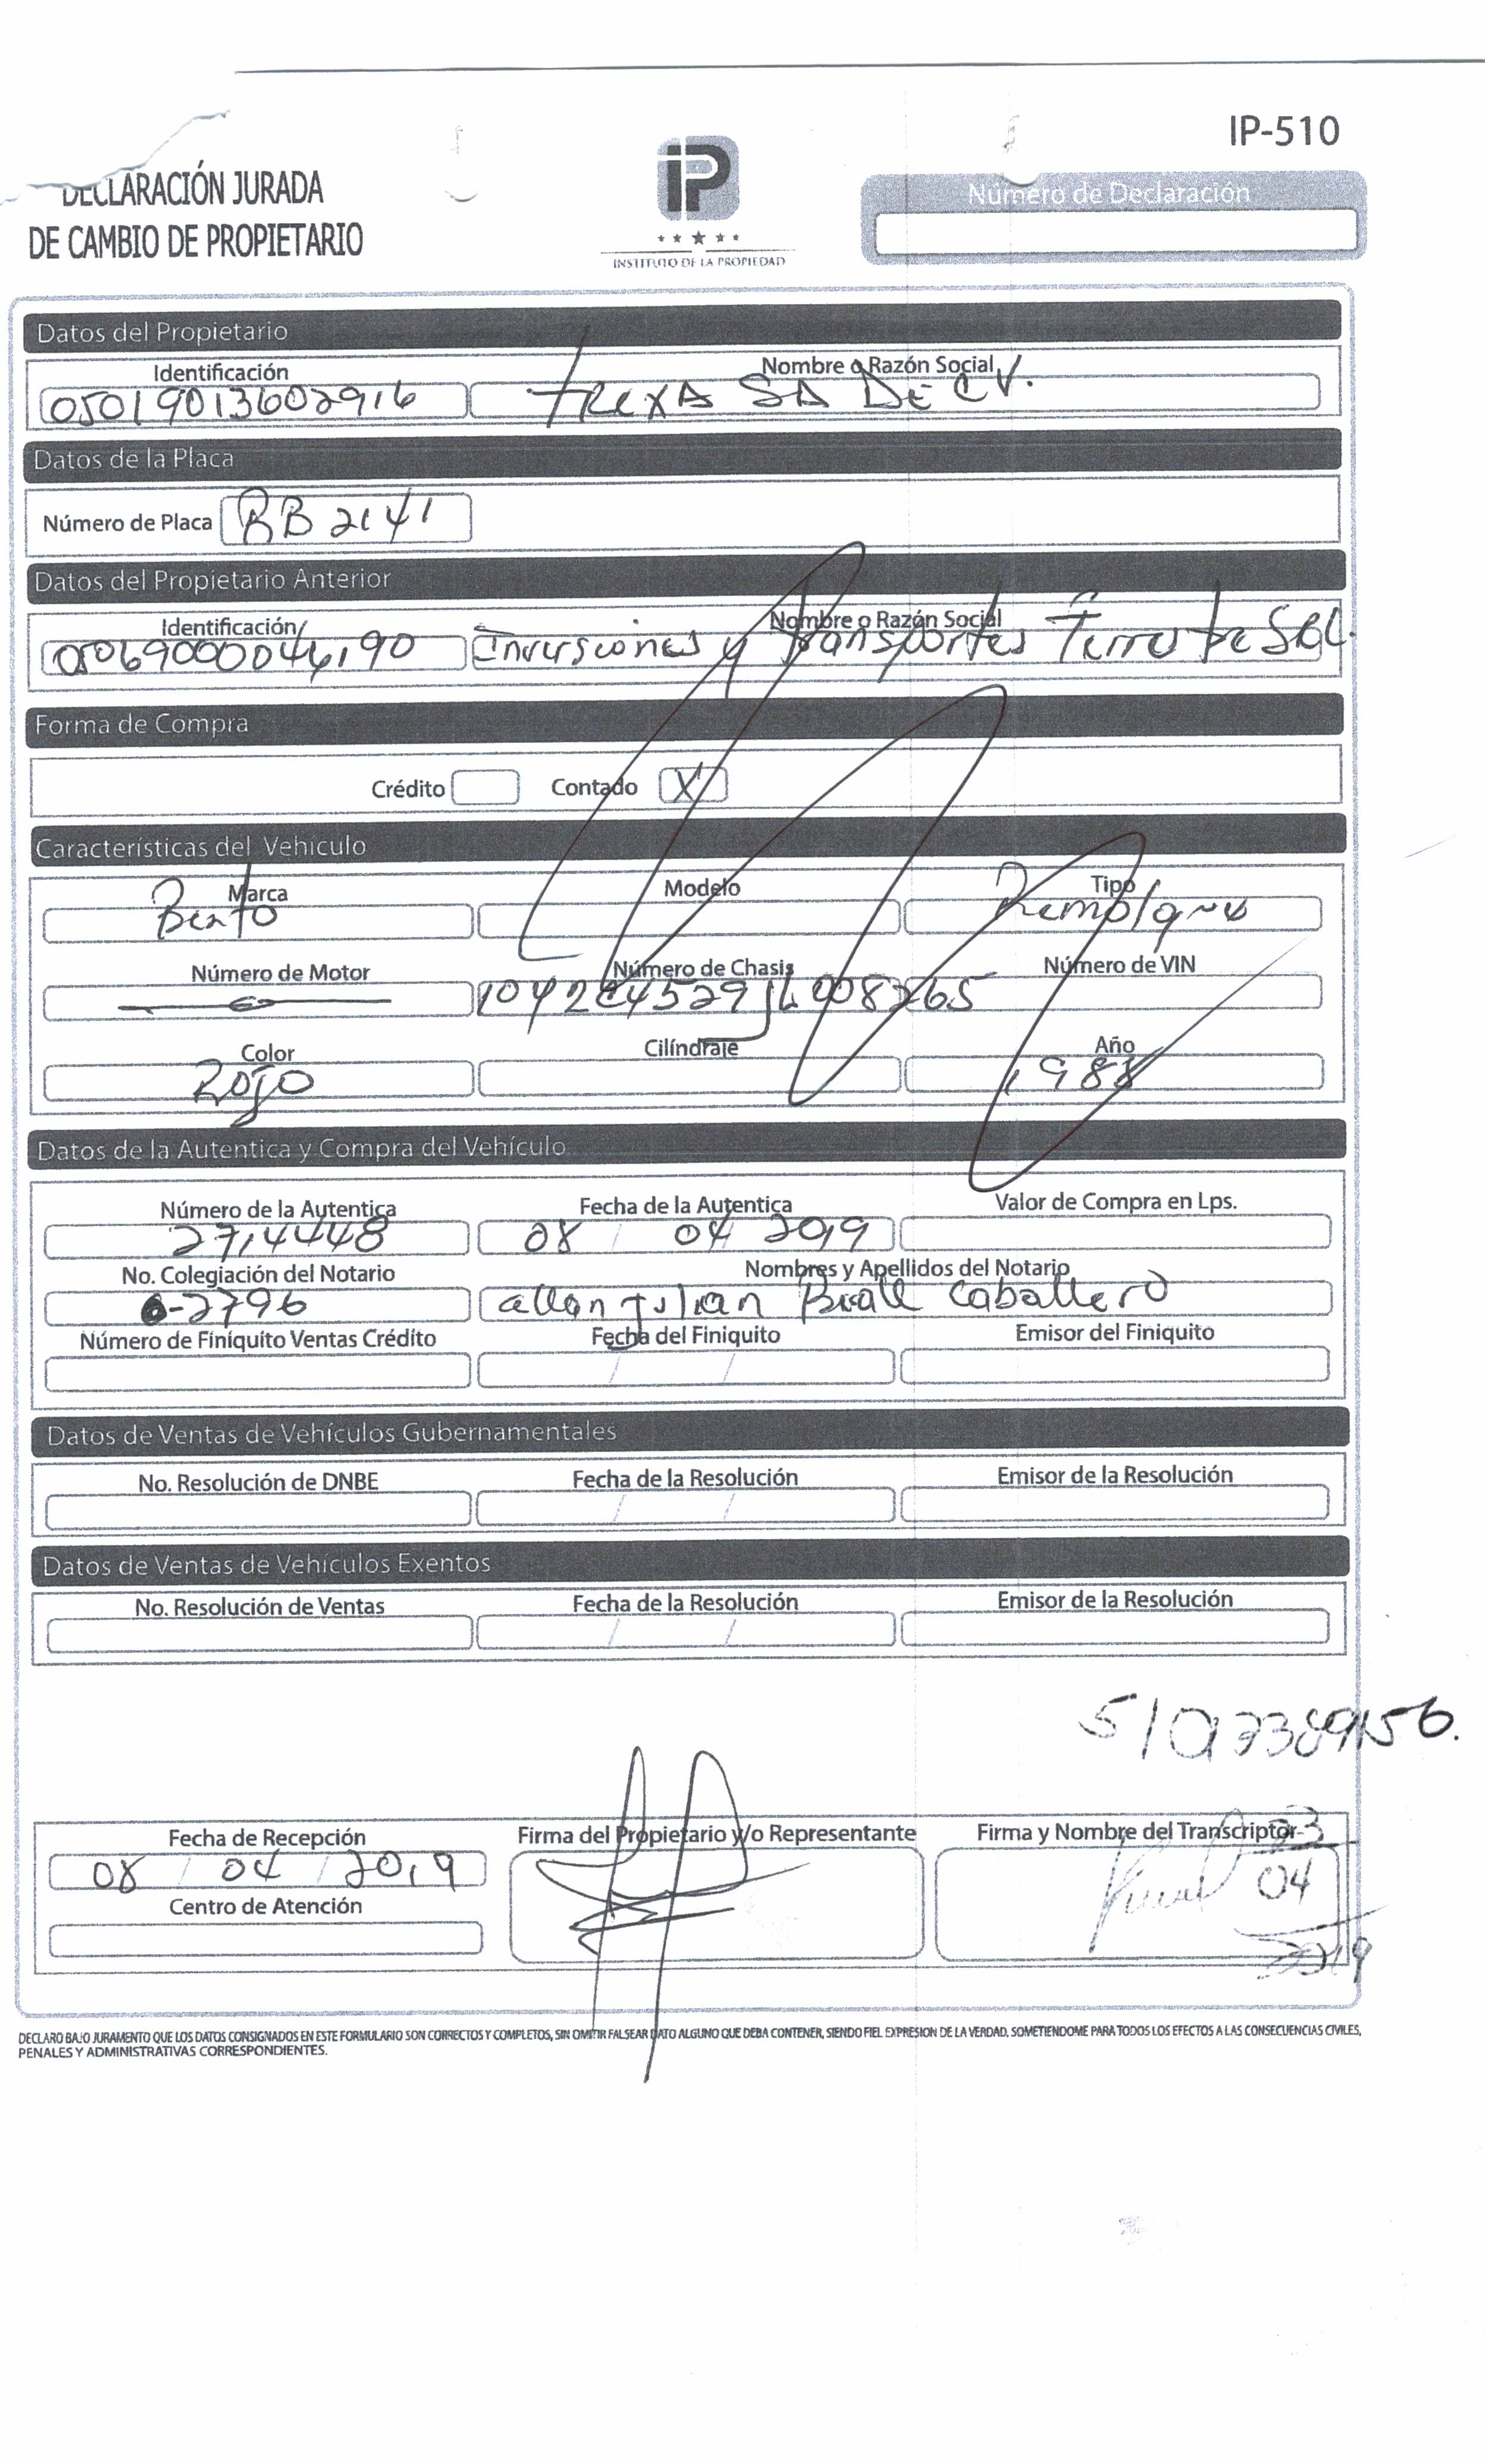 IP-510
DECLARACIÓN JURADA
DE CAMBIO DE PROPIETARIO
iP
INSTITUTO DE LA PROPIEDAD
Número de Declaración
Datos del Propietario
Identificación Nombre o Razón Social
05019013602916 TREXA SA DE CV.
Datos de la Placa
Número de Placa RB 2141
Datos del Propietario Anterior
Identificación Nombre o Razón Social
Inversiones y Transportes
Forma de Compra
Crédito Contado X
Características del Vehículo
Marca Modelo Tipo
Número de Motor Número de Chasis Número de VIN
Color Cilíndraje Año
Rojo 1988
Datos de la Autentica y Compra del Vehículo
Número de la Autentica Fecha de la Autentica Valor de Compra en Lps.
08 04 2019
No. Colegiación del Notario Nombres y Apellidos del Notario
-2796 Caballero
Número de Finiquito Ventas Crédito Fecha del Finiquito Emisor del Finiquito
/ /
Datos de Ventas de Vehículos Gubernamentales
No. Resolución de DNBE Fecha de la Resolución Emisor de la Resolución
/ /
Datos de Ventas de Vehículos Exentos
No. Resolución de Ventas Fecha de la Resolución Emisor de la Resolución
/ /
Fecha de Recepción Firma del Propietario y/o Representante Firma y Nombre del Transcriptor
08 / 04 / 2019
23
04
2019
Centro de Atención
DECLARO BAJO JURAMENTO QUE LOS DATOS CONSIGNADOS EN ESTE FORMULARIO SON CORRECTOS Y COMPLETOS, SIN OMITIR FALSEAR DATO ALGUNO QUE DEBA CONTENER, SIENDO FIEL EXPRESION DE LA VERDAD, SOMETIENDOME PARA TODOS LOS EFECTOS A LAS CONSECUENCIAS CIVILES,
PENALES Y ADMINISTRATIVAS CORRESPONDIENTES.